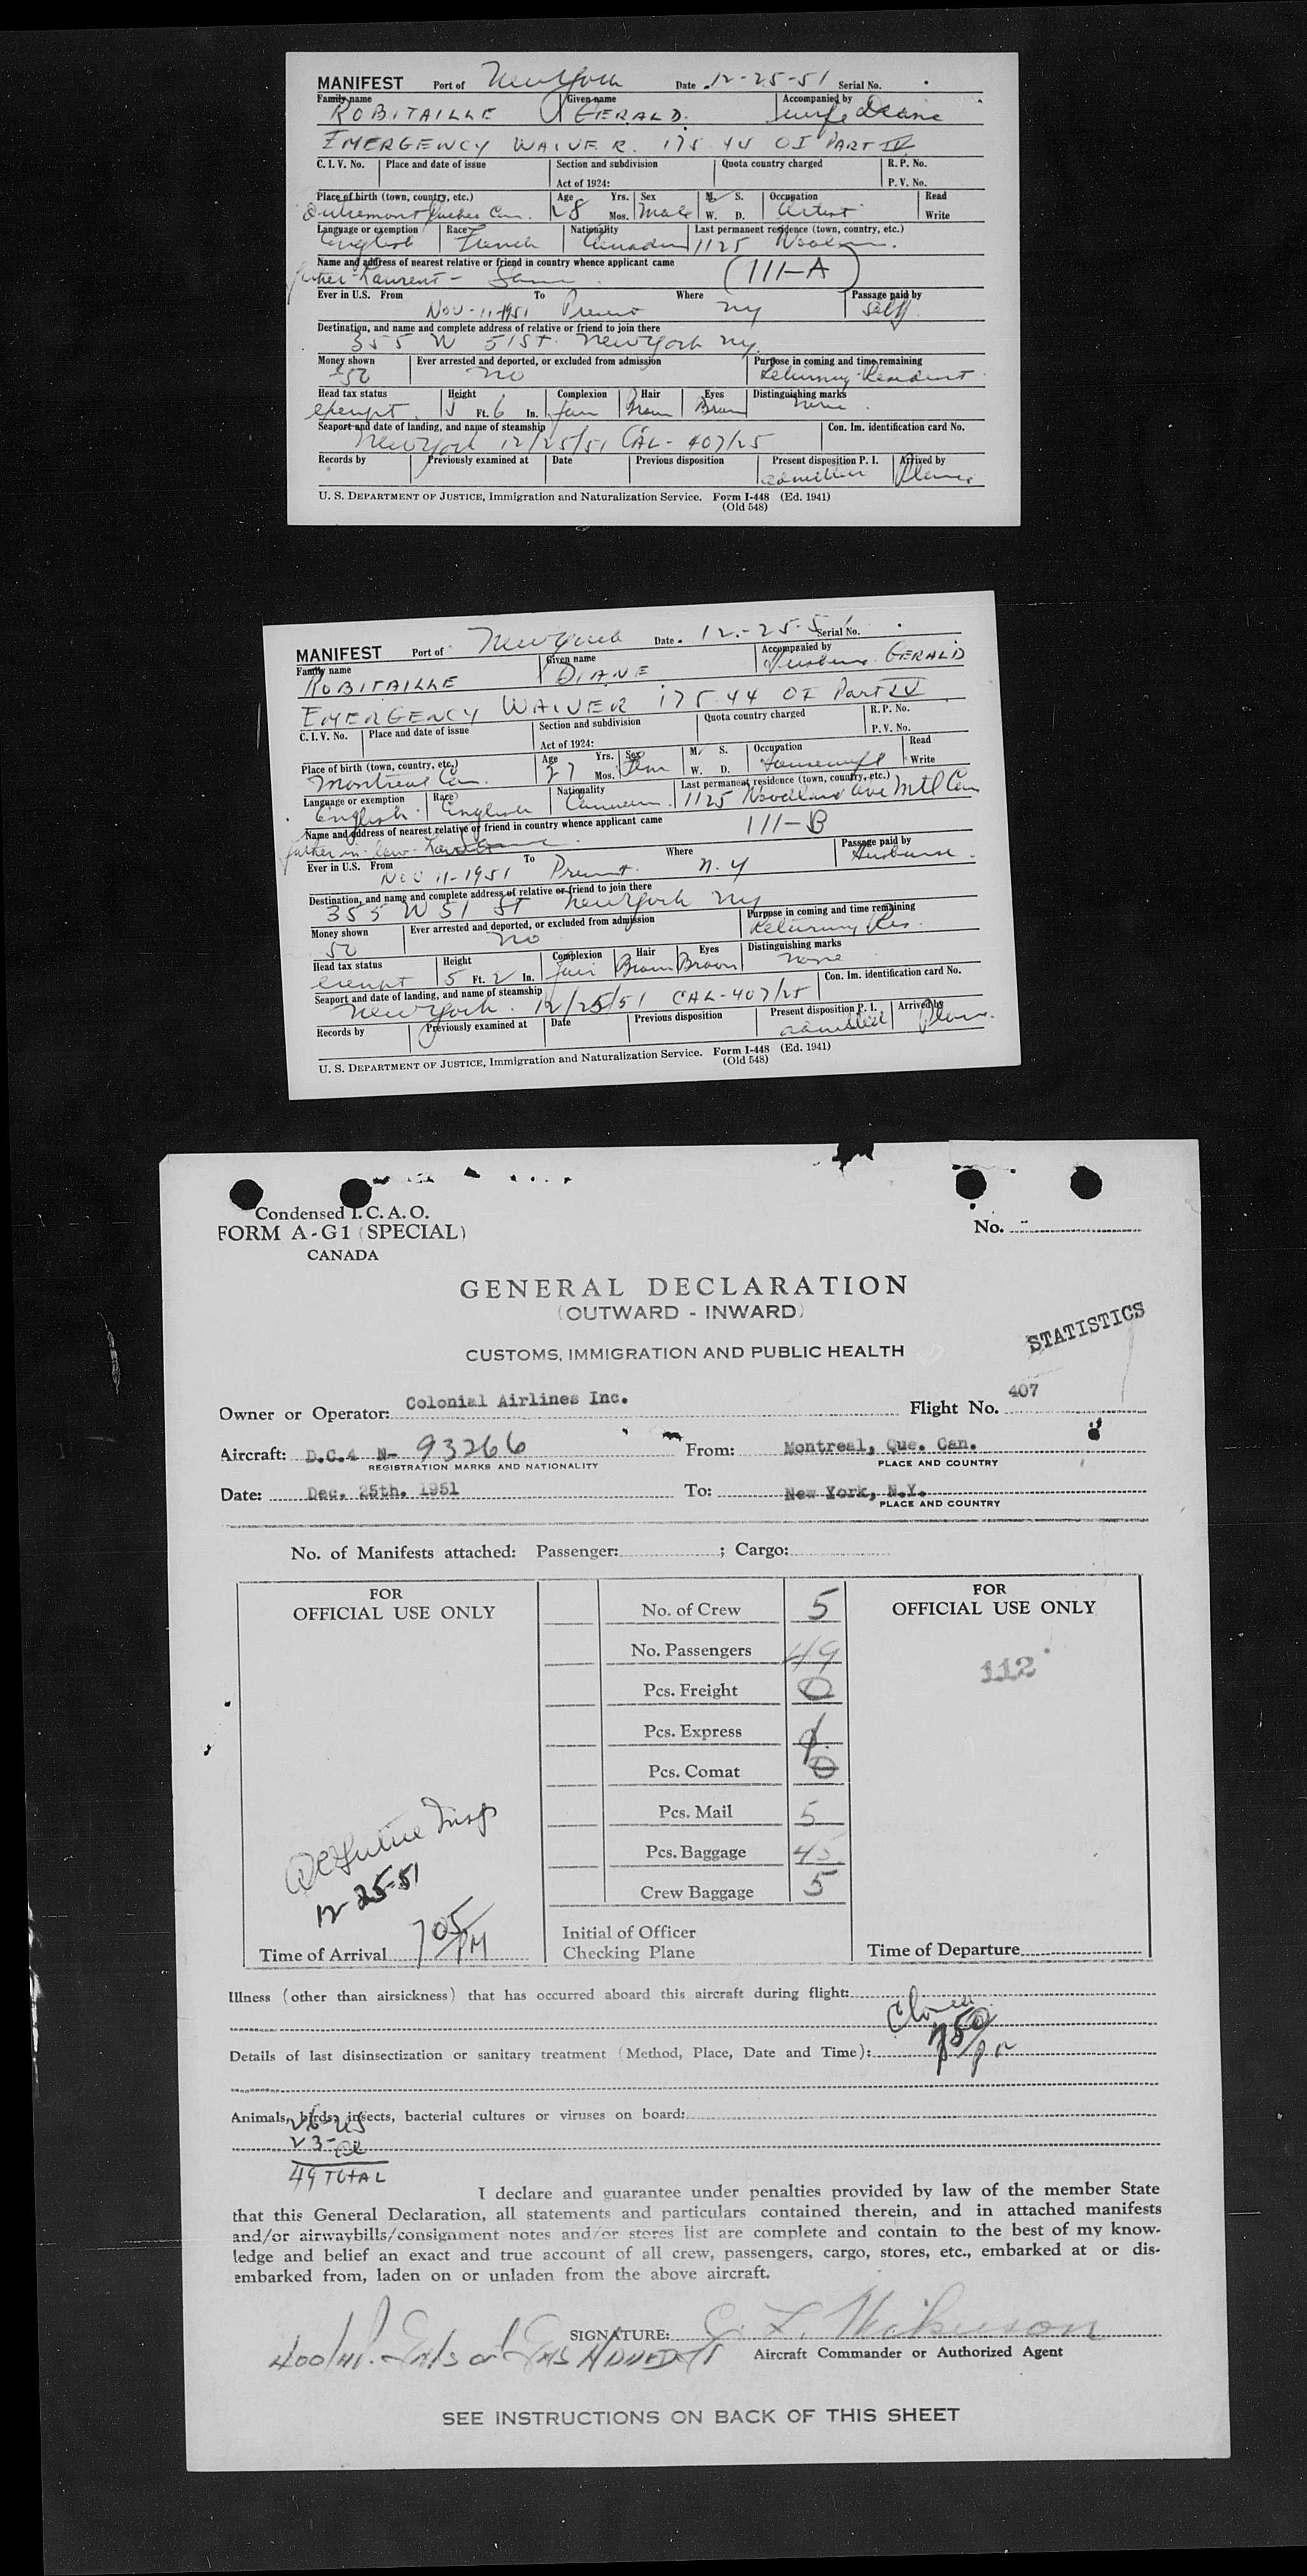 MANIFEST Port of New York Date 12-25-51 Serial No.
Family name Given name Accompanied by
ROBITAILLE GERALD. wife Diane
EMERGENCY WAIVER. 175.44 OI PART IV
C. I. V. No. Place and date of issue Section and subdivision Quota country charged R. P. No.
Act of 1924: P. V. No.
Place of birth (town, country, etc.) Age Yrs. Sex M. S. Occupation Read
Outremont Quebec Can. 28 Mos. Male W. D. Artist Write
Language or exemption Race Nationality Last permanent residence (town, country, etc.)
English French Canadian 1125
Name and address of nearest relative or friend in country whence applicant came
father-Laurent - Same (111-A)
Ever in U.S. From To Where Passage paid by
Nov-11-1951 Present NY Self
Destination, and name and complete address of relative or friend to join there
355 W 51St. New York NY.
Money shown Ever arrested and deported, or excluded from admission Purpose in coming and time remaining
50 No Returning Resident
Head tax status Height Complexion Hair Eyes Distinguishing marks
exempt 5 Ft. 6 In. fair Brown Brown None
Seaport and date of landing, and name of steamship Con. Im. identification card No.
New York 12/25/51 CAL-407/25
Records by Previously examined at Date Previous disposition Present disposition P. I. Arrived by
admitted Plane
U. S. DEPARTMENT OF JUSTICE, Immigration and Naturalization Service. Form I-448 (Ed. 1941)
(Old 548)
MANIFEST Port of New York Date 12-25-51 Serial No.
Family name Given name Accompanied by
ROBITAILLE DIANE Husband GERALD
EMERGENCY WAIVER 175.44 OI Part IV
C. I. V. No. Place and date of issue Section and subdivision Quota country charged R. P. No.
Act of 1924: P. V. No.
Place of birth (town, country, etc.) Age Yrs. Sex M. S. Occupation Read
Montreal Can. 27 Mos. Fem W. D. Housewife Write
Language or exemption Race Nationality Last permanent residence (town, country, etc.)
English English Canadian 1125 Woodland Ave Mtl Can
Name and address of nearest relative or friend in country whence applicant came
father-in-law- 111-B
Ever in U.S. From To Where Passage paid by
Nov 11-1951 Present. N.Y Husband
Destination, and name and complete address of relative or friend to join there
355 W 51 ST New York NY
Money shown Ever arrested and deported, or excluded from admission Purpose in coming and time remaining
50 No Returning Res.
Head tax status Height Complexion Hair Eyes Distinguishing marks
exempt 5 Ft. 2 In. fair Brown Brown None
Seaport and date of landing, and name of steamship Con. Im. identification card No.
New York. 12/25/51 CAL-407/25
Records by Previously examined at Date Previous disposition Present disposition P. I. Arrived by
admitted Plane
U. S. DEPARTMENT OF JUSTICE, Immigration and Naturalization Service. Form I-448 (Ed. 1941)
(Old 548)
Condensed I. C. A. O.
FORM A-G1 (SPECIAL) No.
CANADA
GENERAL DECLARATION
(OUTWARD - INWARD)
STATISTICS
CUSTOMS, IMMIGRATION AND PUBLIC HEALTH
Owner or Operator: Colonial Airlines Inc. Flight No. 407
Aircraft: D.C.4 N- 93266 From: Montreal, Que. Can.
REGISTRATION MARKS AND NATIONALITY PLACE AND COUNTRY
Date: Dec. 25th. 1951 To: New York, N.Y.
PLACE AND COUNTRY
No. of Manifests attached: Passenger: ; Cargo:
FOR OFFICIAL USE ONLY
No. of Crew 5
No. Passengers 49
Pcs. Freight 0
Pcs. Express
Pcs. Comat 0
Pcs. Mail 5
Pcs. Baggage 45
Crew Baggage 5
Initial of Officer
Checking Plane
FOR OFFICIAL USE ONLY
112
Insp
12-25-51
Time of Arrival 705 PM Time of Departure
Illness (other than airsickness) that has occurred aboard this aircraft during flight:
750
Details of last disinsectization or sanitary treatment (Method, Place, Date and Time):
Animals, birds, insects, bacterial cultures or viruses on board:
26-US
23-
49 TOTAL
I declare and guarantee under penalties provided by law of the member State
that this General Declaration, all statements and particulars contained therein, and in attached manifests
and/or airwaybills/consignment notes and/or stores list are complete and contain to the best of my know-
ledge and belief an exact and true account of all crew, passengers, cargo, stores, etc., embarked at or dis-
embarked from, laden on or unladen from the above aircraft.
SIGNATURE:
Aircraft Commander or Authorized Agent
SEE INSTRUCTIONS ON BACK OF THIS SHEET